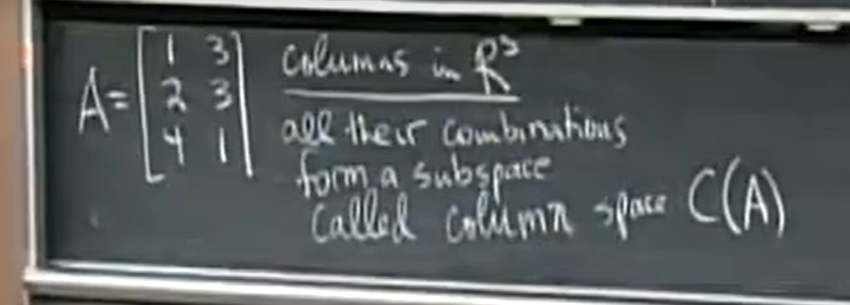 A = [1 3
2 3
4 1]
columns in R³
all their combinations
form a subspace
called column space C(A)